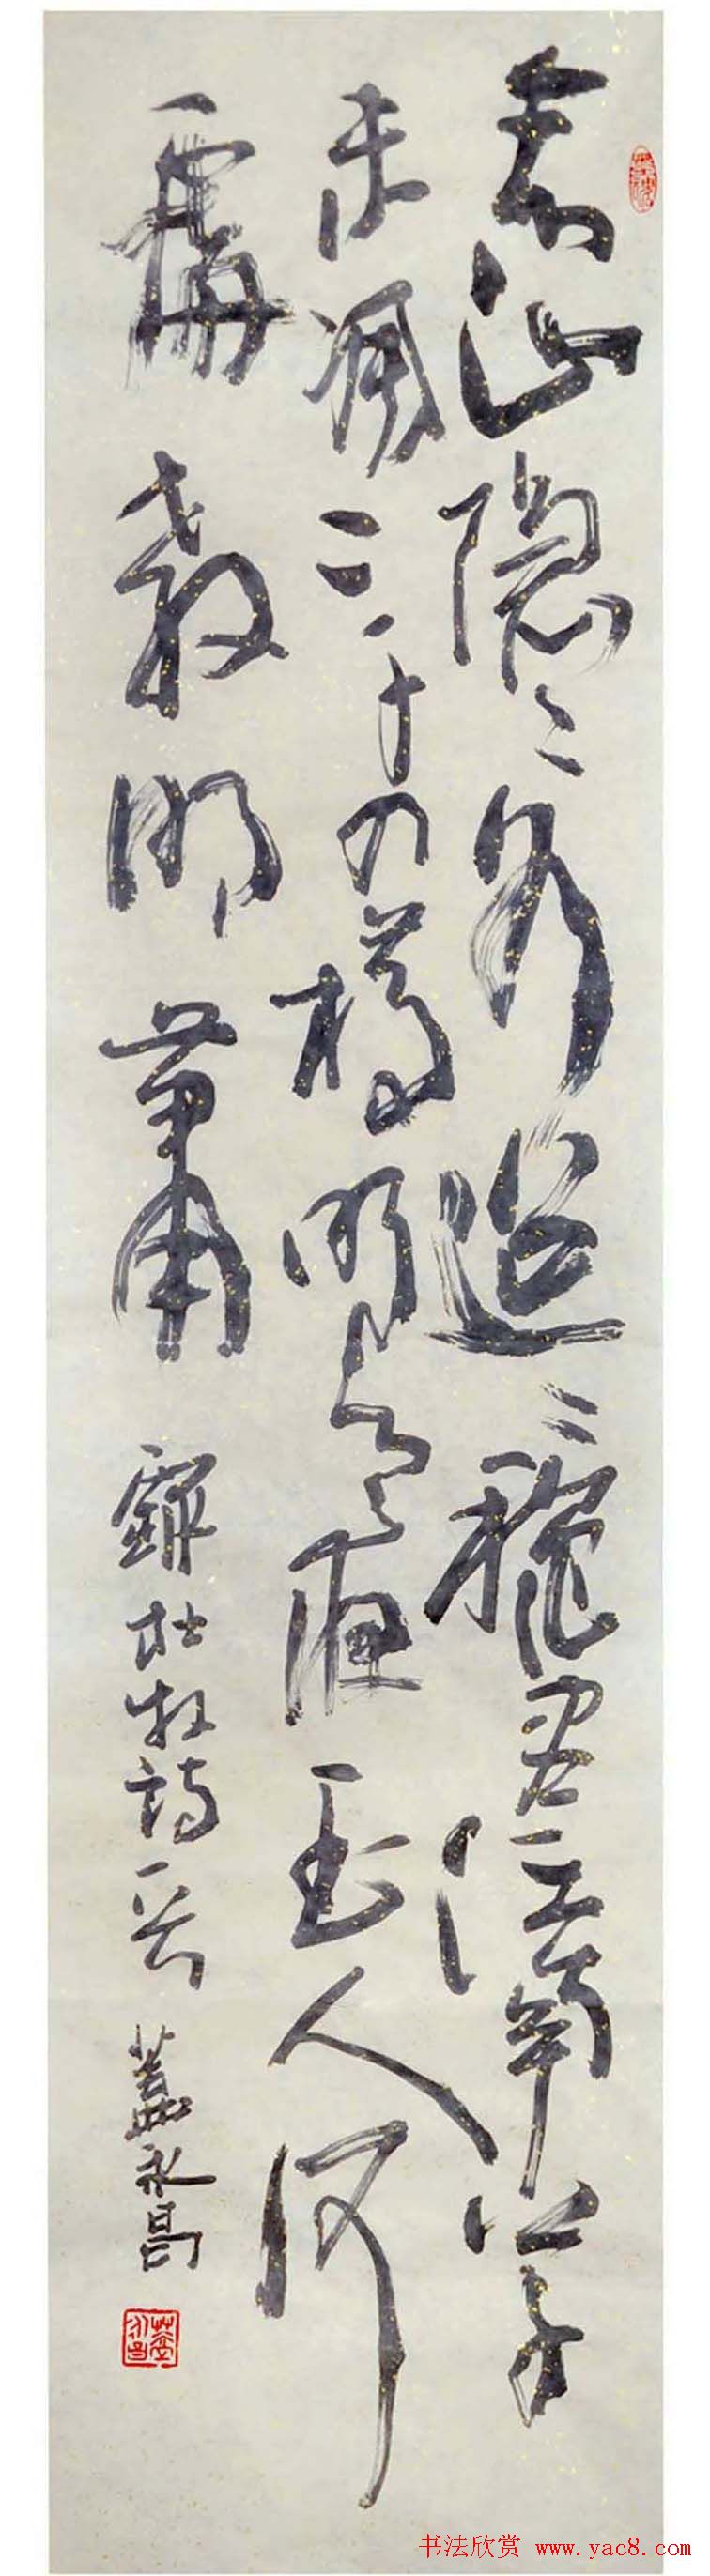 青山隐〻水迢〻秋尽江南草
未凋二十四橋明月夜玉人何
處教吹萧 録杜牧詩一首 蓋永昌
书法欣赏 www.yac8.com